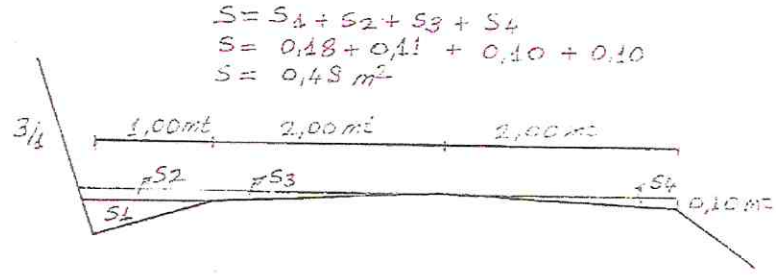 S = S1 + S2 + S3 + S4
S = 0,18 + 0,11 + 0,10 + 0,10
S = 0,49 m²
3/1
1,00mt 2,00mt 2,00mt
S2 S3 S4
S1 0,10mt